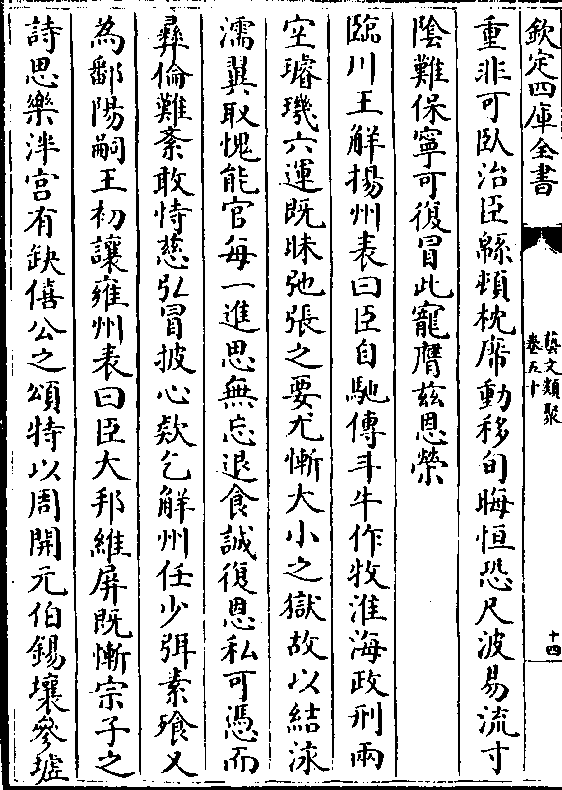 欽定四庫全書
藝文類聚
卷五十
十四
重非可臥治臣緜頓枕席動移旬晦恒恐尺波易流寸
陰難保寧可復冒此寵膺茲恩榮
臨川王解揚州表曰臣自馳傳斗牛作牧淮海政刑兩
空璿璣六運既昧弛張之要尤慚大小之獄故以結泳
濡翼取愧能官每一進思無忘退食誠復恩私可憑而
彝倫難紊敢恃慈弘冒披心欵乞解州任少弭素飱又
為鄱陽嗣王初讓雍州表曰臣大邦維屏既慚宗子之
詩思樂泮宫有缺僖公之頌特以周開元伯錫壤參墟